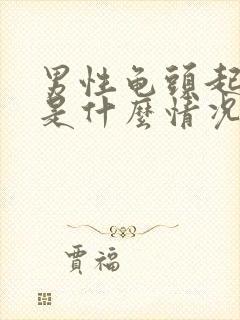 男性龟頭起
是什麽情况
賈福